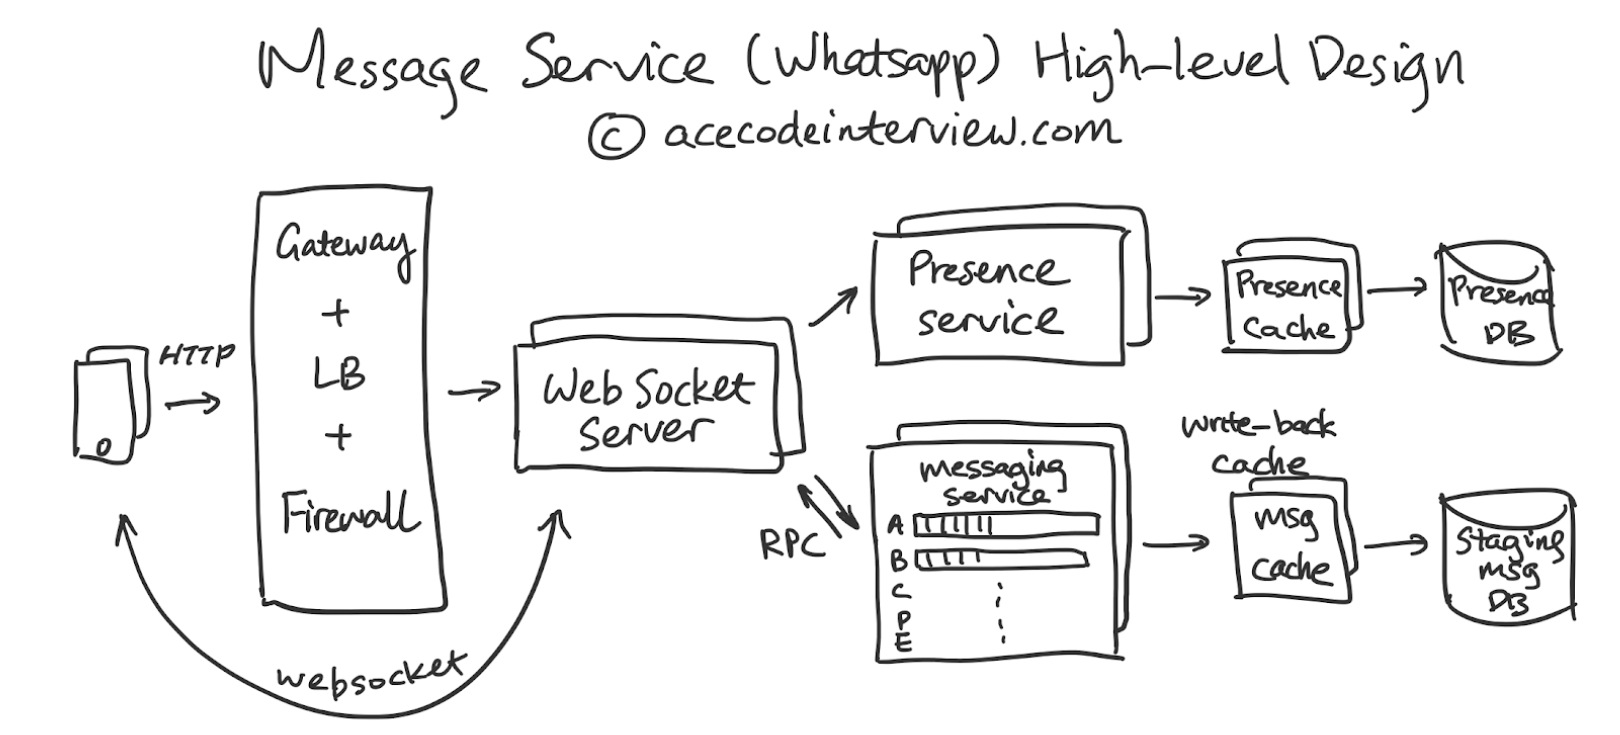 Message Service (Whatsapp) High-level Design
© acecodeinterview.com
HTTP
Gateway
+
LB
+
Firewall
Web Socket
Server
websocket
Presence
service
Presence
Cache
Presence
DB
RPC
messaging
service
A
B
C
P
E
write-back
cache
msg
cache
Staging
msg
DB